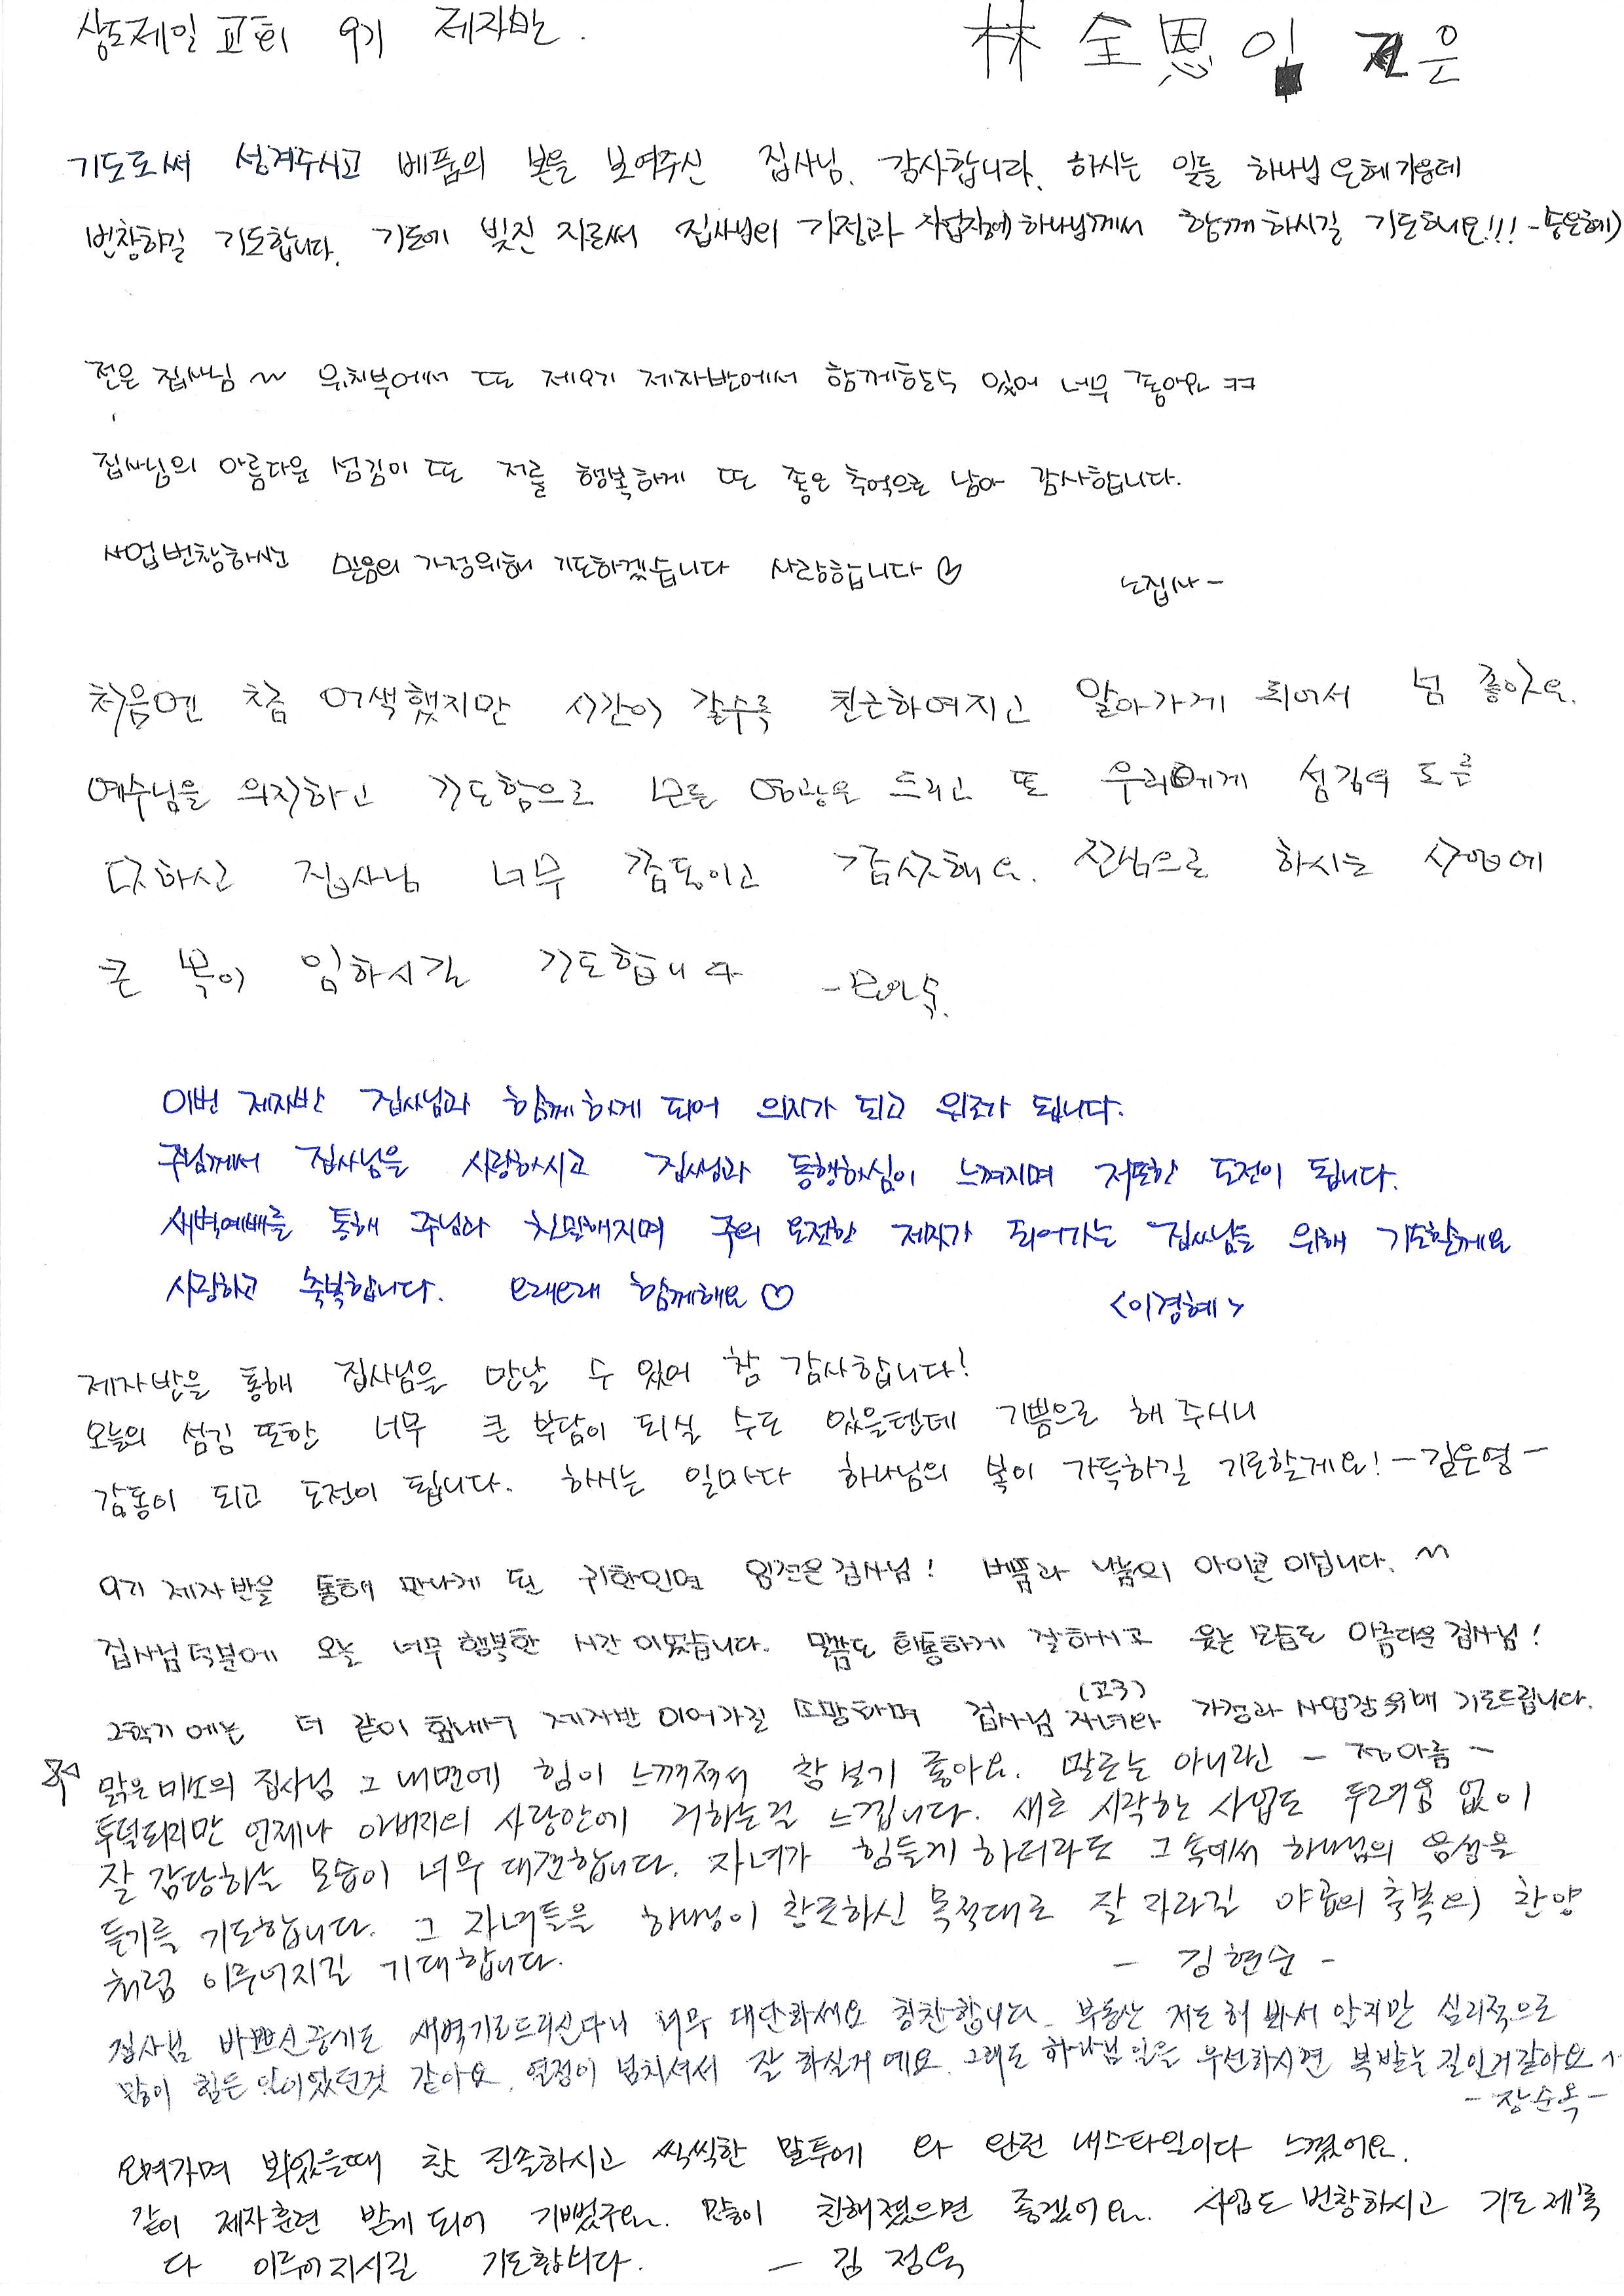 상도제일교회 9기 제자반.
林全恩 임 전은
기도로써 섬겨주시고 베풂의 본을 보여주신 집사님. 감사합니다. 하시는 일들 하나님 은혜 가운데
번창하길 기도합니다. 기도에 빚진 자로써 집사님의 가정과 사업장에 하나님께서 함께하시길 기도해요!!!
전은 집사님~ 유치부에서 또 제9기 제자반에서 함께할수 있어 너무 좋아요 ㅋㅋ
집사님의 아름다운 섬김이 또 저를 행복하게 또 좋은 추억으로 남아 감사합니다.
사업번창하시고 믿음의 가정위해 기도하겠습니다 사랑합니다♡
노집사-
처음엔 쪼금 어색했지만 시간이 갈수록 친근하여지고 알아가게 되어서 넘 좋아요.
예수님을 의지하고 기도함으로 모든 영광을 드리고 또 우리에게 섬김의 도를
다하신 집사님 너무 감동이고 감사해요. 하시는 사업에
큰 복이 임하시길 기도합니다
이번 제자반 집사님과 함께하게 되어 의지가 되고 위로가 됩니다.
주님께서 집사님을 사랑하시고 집사님과 동행하심이 느껴지며 저또한 도전이 됩니다.
새벽예배를 통해 주님과 친밀해지며 주의 온전한 제자가 되어가는 집사님을 위해 기도할께요
사랑하고 축복합니다. 오래오래 함께해요♡ <이경혜>
제자반을 통해 집사님을 만날 수 있어 참 감사합니다!
오늘의 섬김 또한 너무 큰 부담이 되실 수도 있을텐데 기쁨으로 해 주시니
감동이 되고 도전이 됩니다. 하시는 일마다 하나님의 복이 가득하길 기도할게요! -김은영-
9기 제자반을 통해 만나게 된 귀한인연 임전은집사님! 베풂과 나눔의 아이콘이십니다.~
집사님덕분에 오늘 너무 행복한 시간이었습니다. 말씀도 화통하게 잘하시고 웃는 모습도 아름다운 집사님!
2학기에는 더 같이 힘내서 제자반 이어가길 소망하며 집사님 자녀(고3)와 가정과 사업장위해 기도드립니다.
- 정아름 -
맑은 미소의 집사님 그 내면에 힘이 느껴져서 참 보기 좋아요. 말로는 아니라신
투덜되지만 언제나 아버지의 사랑안에 거하는걸 느낍니다. 새로 시작한 사업도 두려움 없이
잘 감당하는 모습이 너무 대견합니다. 자녀가 힘들게 하더라도 그 속에서 하나님의 음성을
듣기를 기도합니다. 그 자녀들을 하나님이 창조하신 목적대로 잘 자라길 야곱의 축복의 찬양
처럼 이루어지길 기대합니다. - 김현순 -
집사님 바쁘신중에도 새벽기도드리신다니 너무 대단하세요 칭찬합니다. 부동산 저도 해봐서 알지만 심리적으로
많이 힘든 일이었던것 같아요. 열정이 넘치셔서 잘 하실거예요. 그래도 하나님일을 우선하시면 복받는 길인거같아요^^
-장순옥-
오며가며 봐왔을때 참 진솔하시고 씩씩한 말투에 와 완전 내스타일이다 느꼈어요.
같이 제자훈련 받게 되어 기뻤구요. 많이 친해졌으면 좋겠어요. 사업도 번창하시고 기도제목
다 이루어지시길 기도합니다. - 김정옥